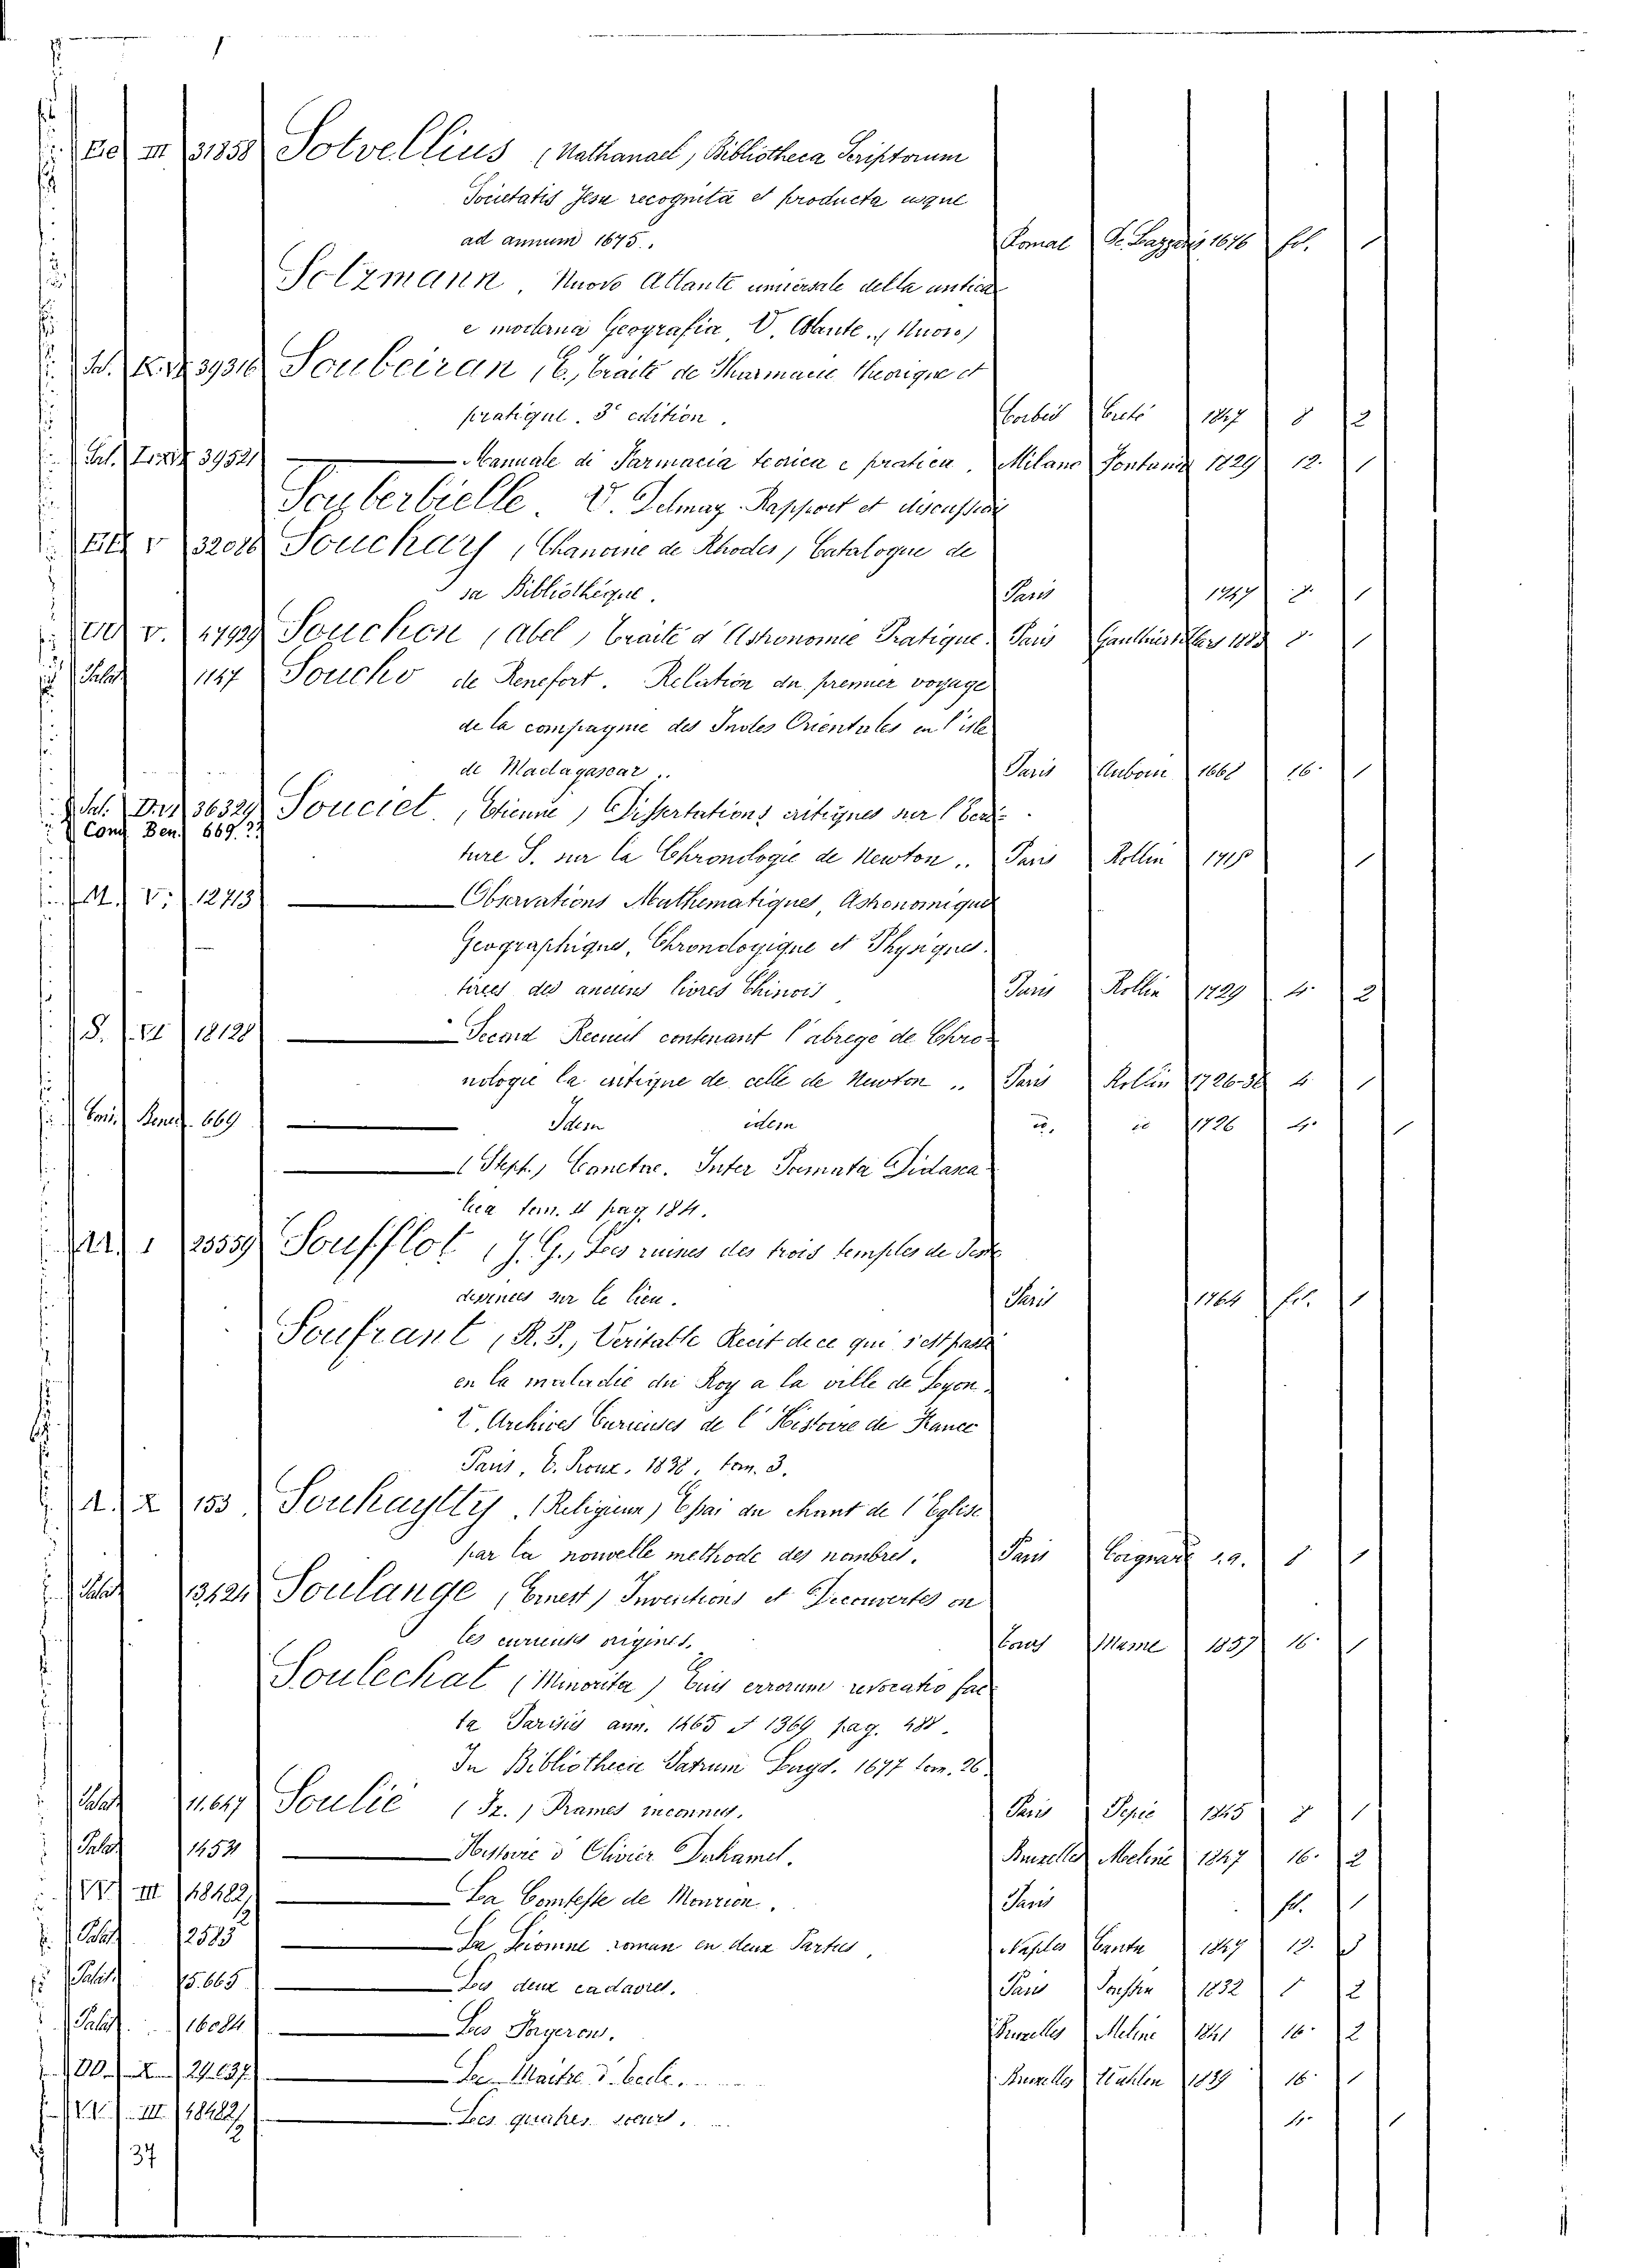 III 31858 Sotvellius (Nathanael, Bibliotheca Scriptorum
Societatis Jesu recognita et producta usque
ad annum 1675. Romae 1676 fol. 1
Solzmann. Nuovo Atlante universale della antica
e moderna Geografia, V. Atlante. (Nuovo)
39316 Soubeiran, (E., Traité de Pharmacie theorique et
pratique. 3e edition. Corbeil Creté 1847 8 2
39521 — Manuale di Farmacia teorica e pratica. Milano Fontana 1829 12. 1
Souberbielle. V. Rapport et discussion
V 32018 Souchay, (Chanoine de Rhodes, Catalogue de
sa Bibliothèque. Paris 1747 8. 1
V. 47929 Souchon (Abel, Traité d'Astronomie Pratique. Paris Gauthier Villars 1883 8. 1
Palat 1147 Souchu de Renefort. Relation du premier voyage
de la compagnie des Indes Orientales en l'isle
de Madagascar.. Paris Auboin 1668 16. 1
36329 Souciet, (Etienne) Dissertations critiques sur l'Ecri-
Conv Ben. 669.
ture S. sur la Chronologie de Newton.. Paris Rollin 1
M. V. 12713 — Observations Mathematiques, Astronomiques
Geographiques, Chronologique et Physiques.
tirées des anciens livres Chinois Paris Rollin 1729 4. 2
S. VI 18128 — Second Recueil contenant l'abregé de Chro-
nologie la critique de celle de Newton.. Paris Rollin 1726-32 4 1
Conv. Bened. 669 — Idem idem id. id 1726 4. 1
— (Steph.) Cometae. Inter Poemata Didasca-
lica tom. II pag. 184.
I 23559 Soufflot, (J. G., Les ruines des trois temples de Peste
dessinées sur le lieu. Paris 1764 fol. 1
Soufrant, (R. P., Veritable Recit de ce qui s'est passé
en la maladie du Roy a la ville de Lyon.
V. Archives Curieuses de l'Histoire de France
Paris, 1838, tom. 3.
A. X 153 Souhaytty. (Religieux) Essai du chant de l'Eglise
par la nouvelle methode des nombres. Paris Coignard s.a. 8 1
Palat 13424 Soulange, (Ernest) Inventions et Découvertes on
les curieuses origines. Tours Mame 1857 16. 1
Soulechat (Minorita) Eius errorum revocatio fac-
ta Parisiis ann. 1365 et 1369 pag. 488.
In Bibliotheca Patrum Lugd. 1677 tom. 26.
Palat 11.647 Soulié (Fr.) Drames inconnus. Paris 1845 8 1
Palat 1453 — Histoire d'Olivier Duhamel. Bruxelles Meline 1847 16. 2
III 48482/2 — La Comtesse de Monrion. Paris fol. 1
Palat 12585 — La Lionne roman en deux Parties, Naples Cante 1847 12.
Palat. 15.665 — Les deux cadavres. Paris 1832 8 2
Palat. 16084 — Les Forgerons. Bruxelles Meline 1841 16. 2
X 24.637 — Le Maitre d'ecole. Bruxelles Wahlen 1839 16. 1
III 48482/2 — Les quatres soeurs. 4. 1
37